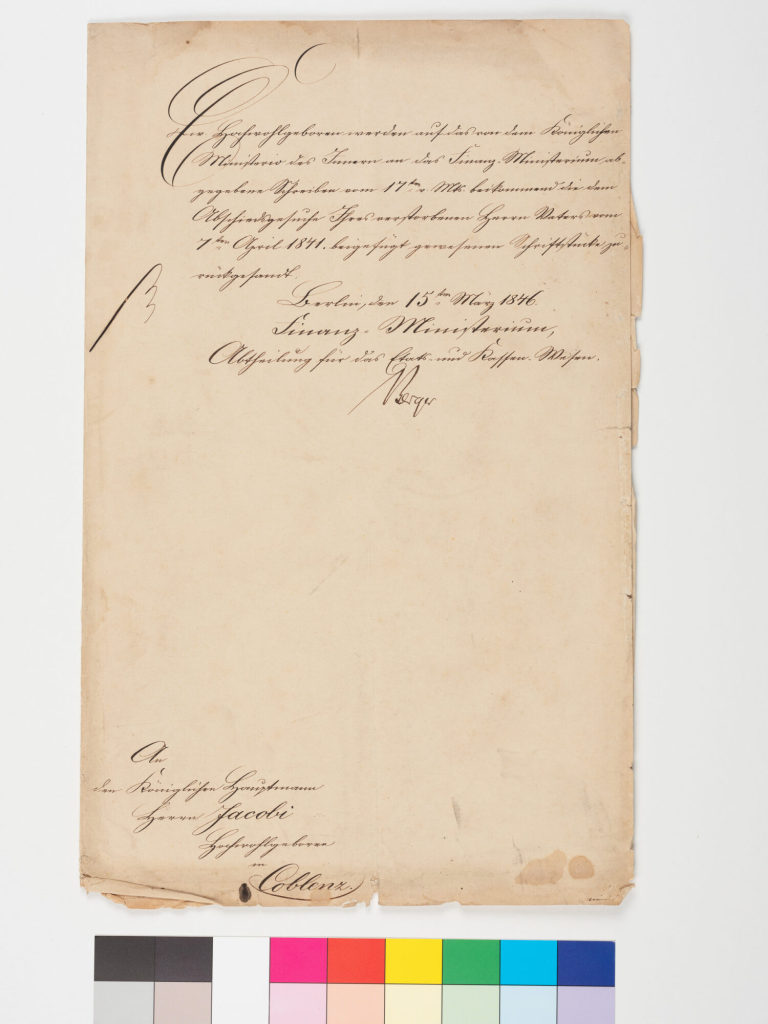 Ew. Hochwohlgeboren werden auf das von dem Königlichen
Ministerio des Innern an das Finanz-Ministerium ab-
gegebene Schreiben vom 17ten v. Mts. beikommend die dem
Abschiedsgesuche Ihres verstorbenen Herrn Vaters vom
7ten April 1841. beigefügt gewesenen Schriftstücke zu-
rückgesandt.
Berlin, den 15ten März 1846.
Finanz-Ministerium,
Abtheilung für das Etats- und Kassen-Wesen.
An
den Königlichen Hauptmann
Herrn Jacobi
Hochwohlgeboren
in
Coblenz.